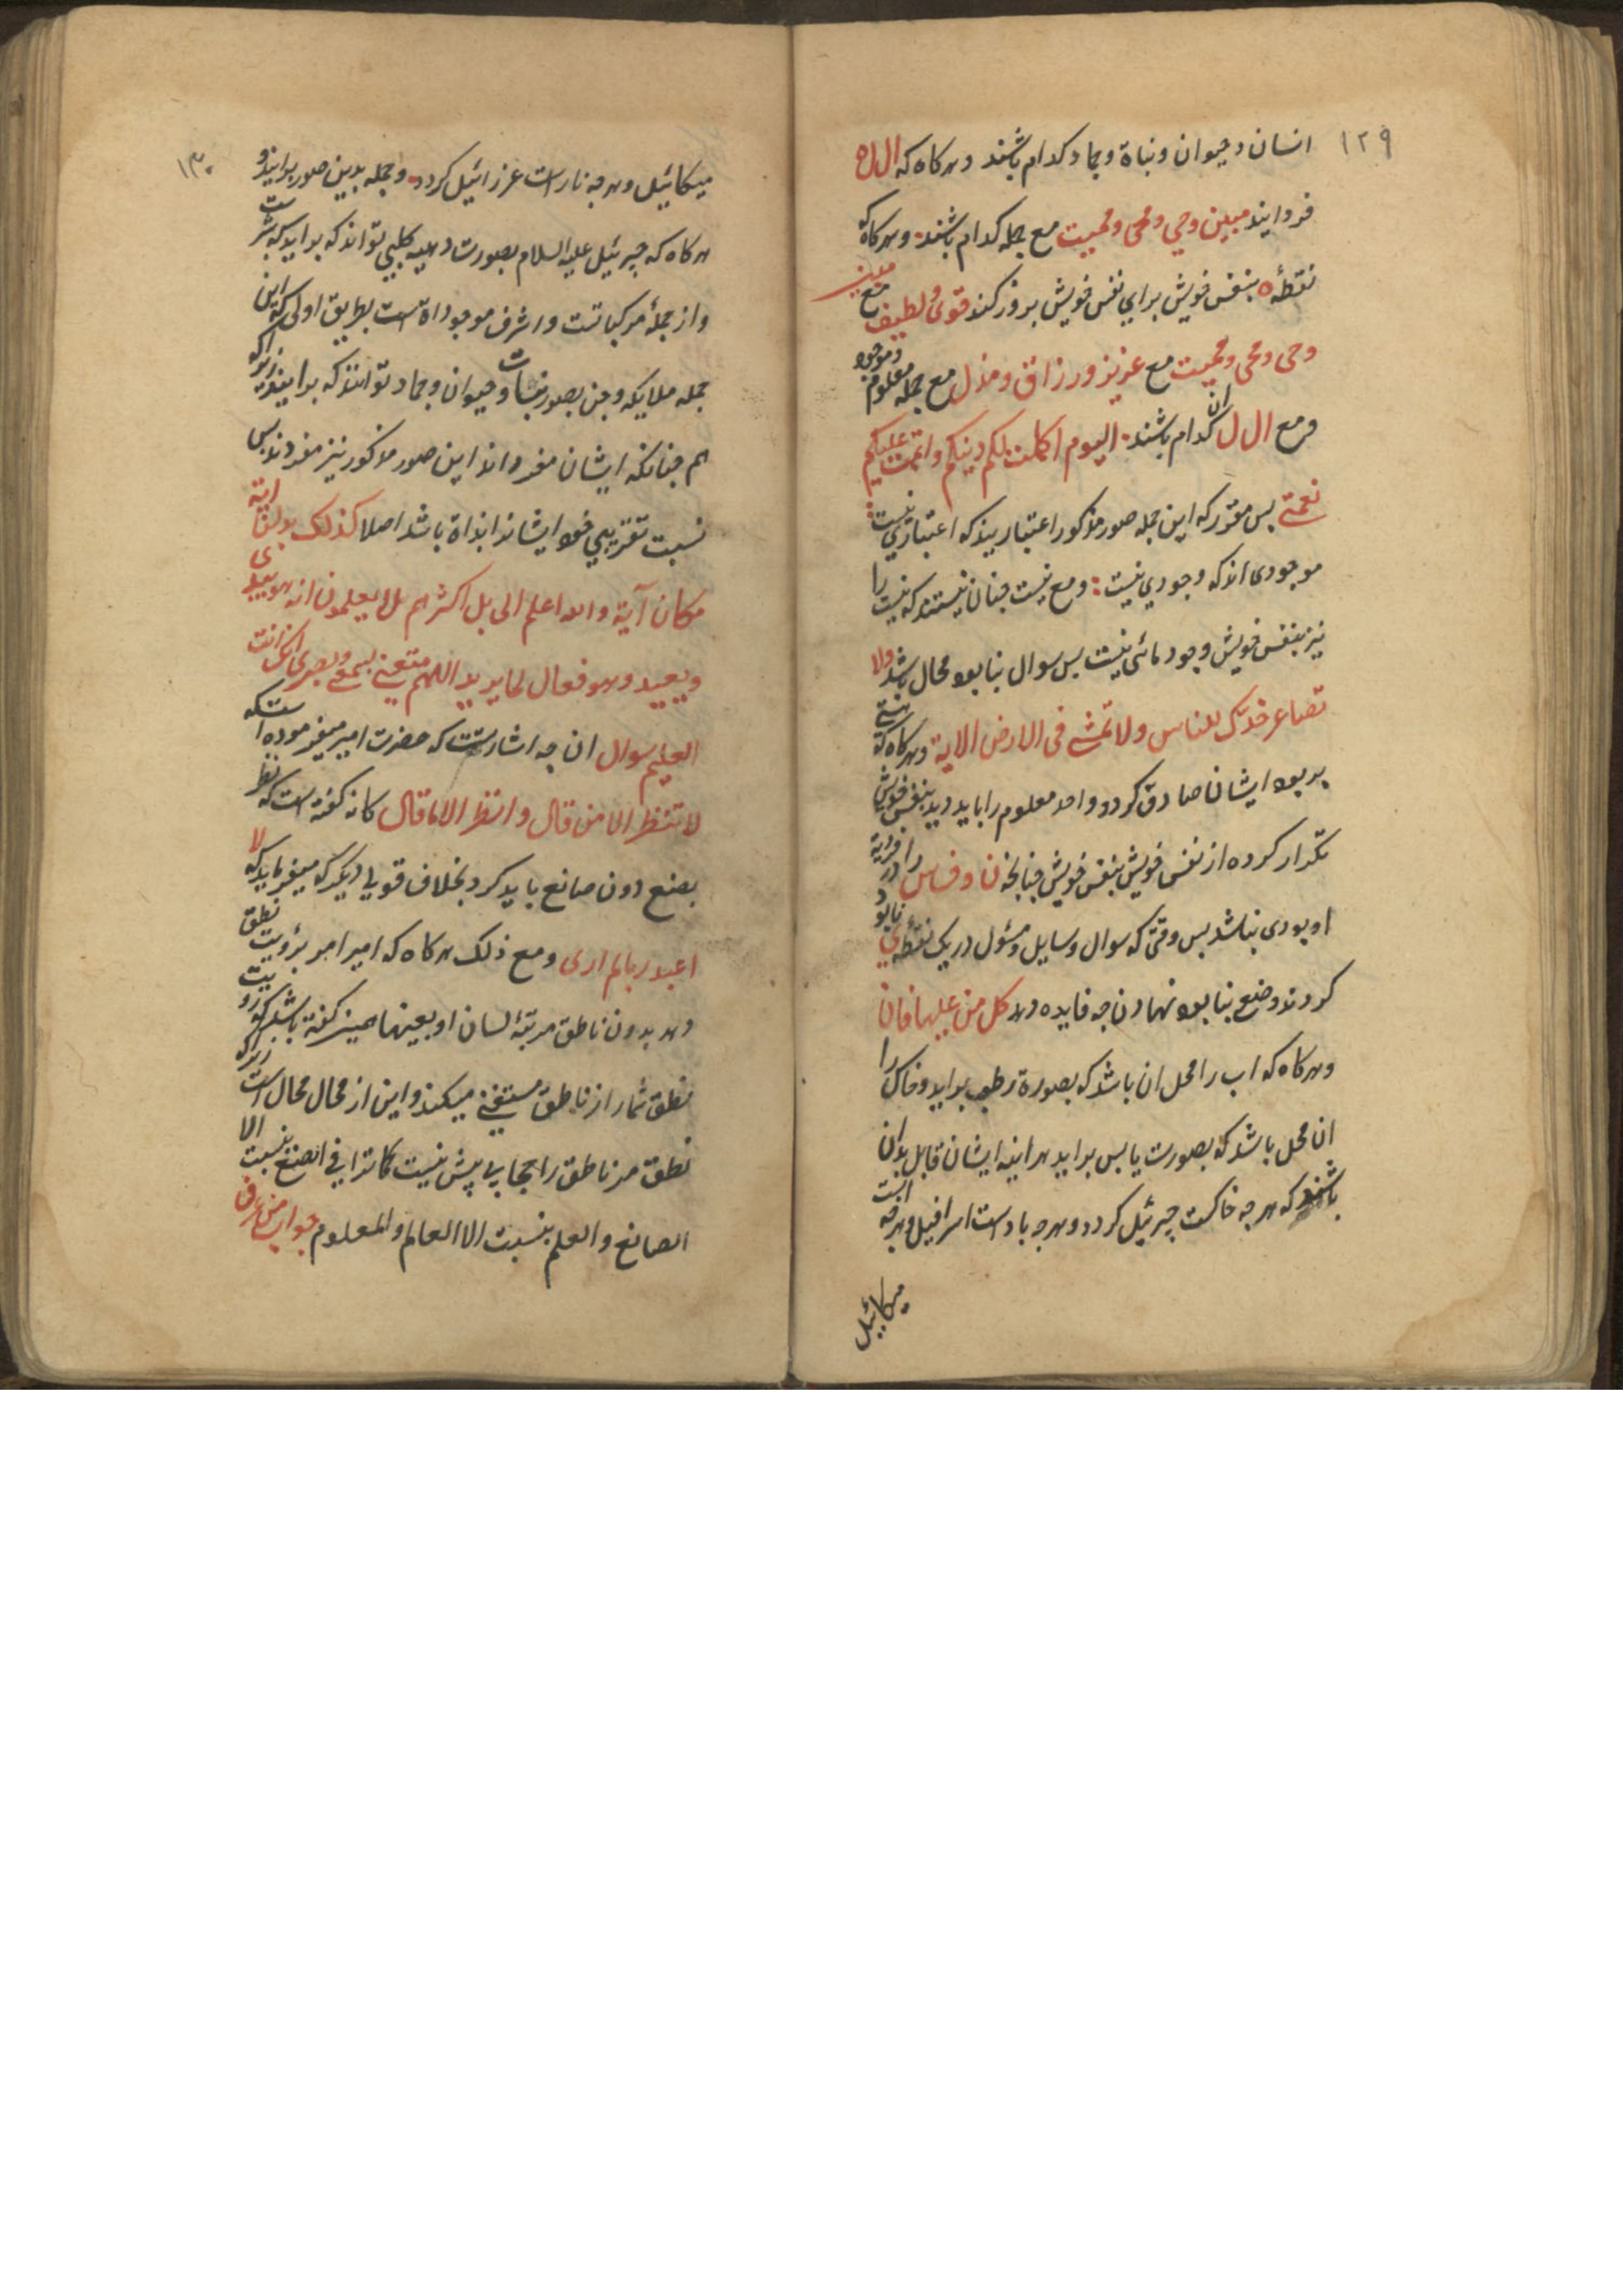 ١٢٩
انسان وحیوان ونباة وجماد کدام باشند وهرکاه که ال اه
فردایند مبین وحي ومحی وممیت مع جمله کدام باشند وهرکاه که
نقطۀ ه بنفس خویش برای نفس خویش بروز کند قوی ولطیف مع مبین
وحی ومحی وممیت مع عزیز ورزاق ومذل مع جمله معلوم وموجود
ومع ال ل ان کدام باشند الیوم اکملت لکم دینکم واتممت علیکم
نعمتی بس مقرر که این جمله صور مذکور اعتبار بیند که اعتباری نیست
موجودی اند که وجودي نیست ومع نیست جنان نیستند که نیست را
نیز بنفس خویش وجود مائی نیست بس سوال بنابود محال باشد ولا
تصاعر خدک للناس ولا تمشی فی الارض الایة وهرکاه که
بر بود ایشان صادق کردد واحد معلوم را باید دید بنفس خویش
تکرار کرده از نفس خویش بنفس خویش جنانجه ن وف اس را
او بودی نباشد بس وقتی که سوال وسایل ومسٔول در یک نقطه نابود
کردند وضع بنابود نهادن جه فایده دهد کل من علیها فان
وهرکاه که اب را محل ان باشد که بصورة رطب براید وخاک را
ان محل باشد که بصورت یابس براید هراینه ایشان قابل بران
باشند که هرجه خاکست جبرئیل کردد وهرجه بادست اسرافیل وهرجه ابست
میکائیل
١٣٠
میکائیل وهرجه نار است عزرائیل کردد وجمله بدین صور برایند و
هرکاه که جبرئیل علیه السلام بصورت دحیه کلبی تواند که براید که بشر ست
واز جملۀ مرکباتست واشرف موجوداة است بطریق اولی که این
جمله ملایکه وجن بصور نبات وحیوان وجماد توانند که برایند زیراکه
هم جنانکه ایشان مفرداند این صور مذکور نیز مفردند بس
نسبت تقریبی خود ایشانرا بذاة باشد اصلا کذلک بدلنا ایة
مکان آیة والله اعلم الی بل اکثرهم لا یعلمون انه هو یبدی
ویعید وهو فعال لما یرید اللهم متعنی بسمعی وبصری انک انت
العلیم سوال ان جه اشارتست که حضرت امیر میفرموده است که
لا تنظر الی من قال وانظر الی ما قال کانه کفته است که نظر
بصنع دون صانع باید کرد بخلاف قولی دیکر که میفرماید که لا
اعبد ربا لم اری ومع ذلک هرکاه که امیر امر برؤیت نطق
دهد بدون ناطق مرتبۀ لسان او بعینها همین کفته باشد که رویت
نطق شمار از ناطق مستغنی میکند واین از محال محال است زیراکه
نطق مر ناطق را حجابی پیش نیست کما ترا فی الصنع بنسبت الا
الصانع والعلم بنسبت الا العالم والمعلوم جواب من عرف